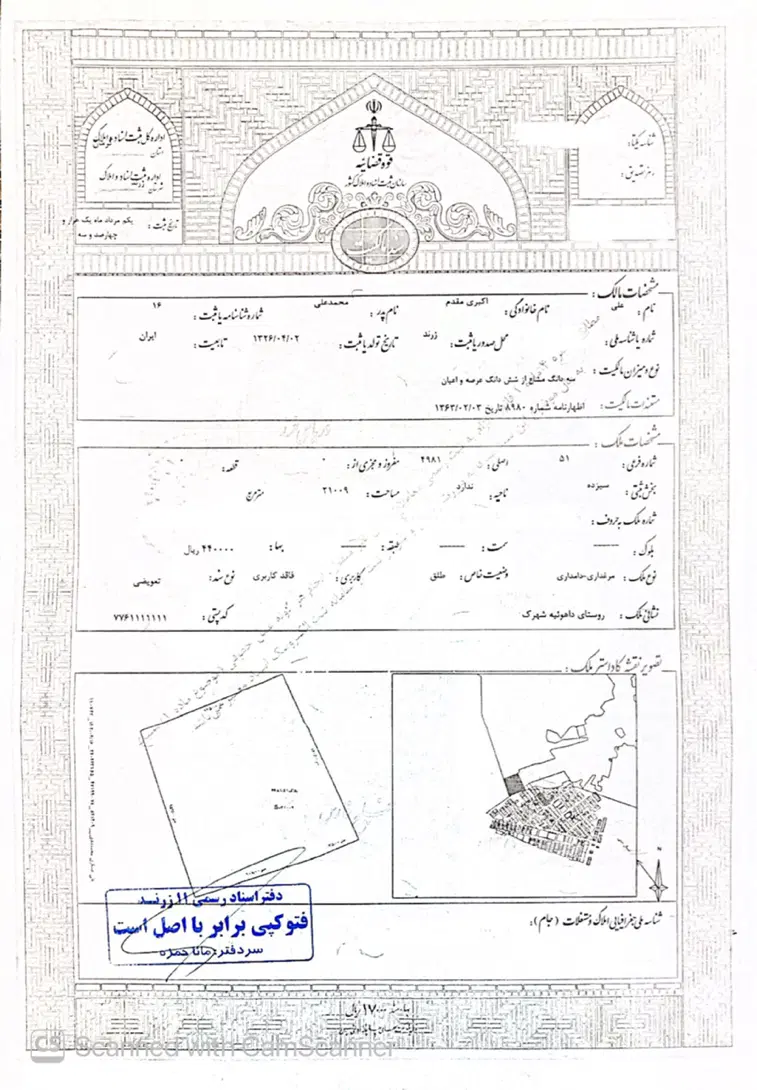 قوه قضائیه
سازمان ثبت اسناد و املاک کشور
اداره کل ثبت اسناد و املاک
استان
اداره ثبت اسناد و املاک
شهرستان
تاریخ ثبت: یکم مرداد ماه یک هزار و چهارصد و سه
شناسه یکتا:
رمز تصدیق:
سند مالکیت
مشخصات مالک:
نام: علی نام خانوادگی: اکبری مقدم نام پدر: محمدعلی شماره شناسنامه یا ثبت: ۱۶
شماره یا شناسه ملی: محل صدور یا ثبت: زرند تاریخ تولد یا ثبت: ۱۳۲۶/۰۴/۰۲ تابعیت: ایران
نوع و میزان مالکیت: دانگ مشاع از شش دانگ عرصه و اعیان
مستندات مالکیت: اظهارنامه شماره ۸۹۸۰ تاریخ ۱۳۶۳/۰۲/۰۳
مشخصات ملک:
شماره فرعی: ۵۱ اصلی: ۴۹۸۱ مفروز و مجزی از: ۰ قطعه: ۰
بخش ثبتی: سیزده ناحیه: ندارد مساحت: ۲۱۰۰۹ مترمربع
شماره ملک به حروف:
بلوک: —— سمت: —— طبقه: —— بها: ۴۴۰۰۰۰ ریال
نوع ملک: مرغداری-دامداری وضعیت خاص: طلق کاربری: فاقد کاربری نوع سند: تعویضی
نشانی ملک: روستای داهوئیه شهرک کدپستی: ۷۷۶۱۱۱۱۱۱۱
تصویر نقشه کاداستر ملک:
دفتر اسناد رسمی ۱۱ زرند
فتوکپی برابر با اصل است
سردفتر: مانا حمزه
شناسه ملی جغرافیایی املاک و مستغلات (جام):
۱۷۰۰۰ ریال
CS Scanned with CamScanner